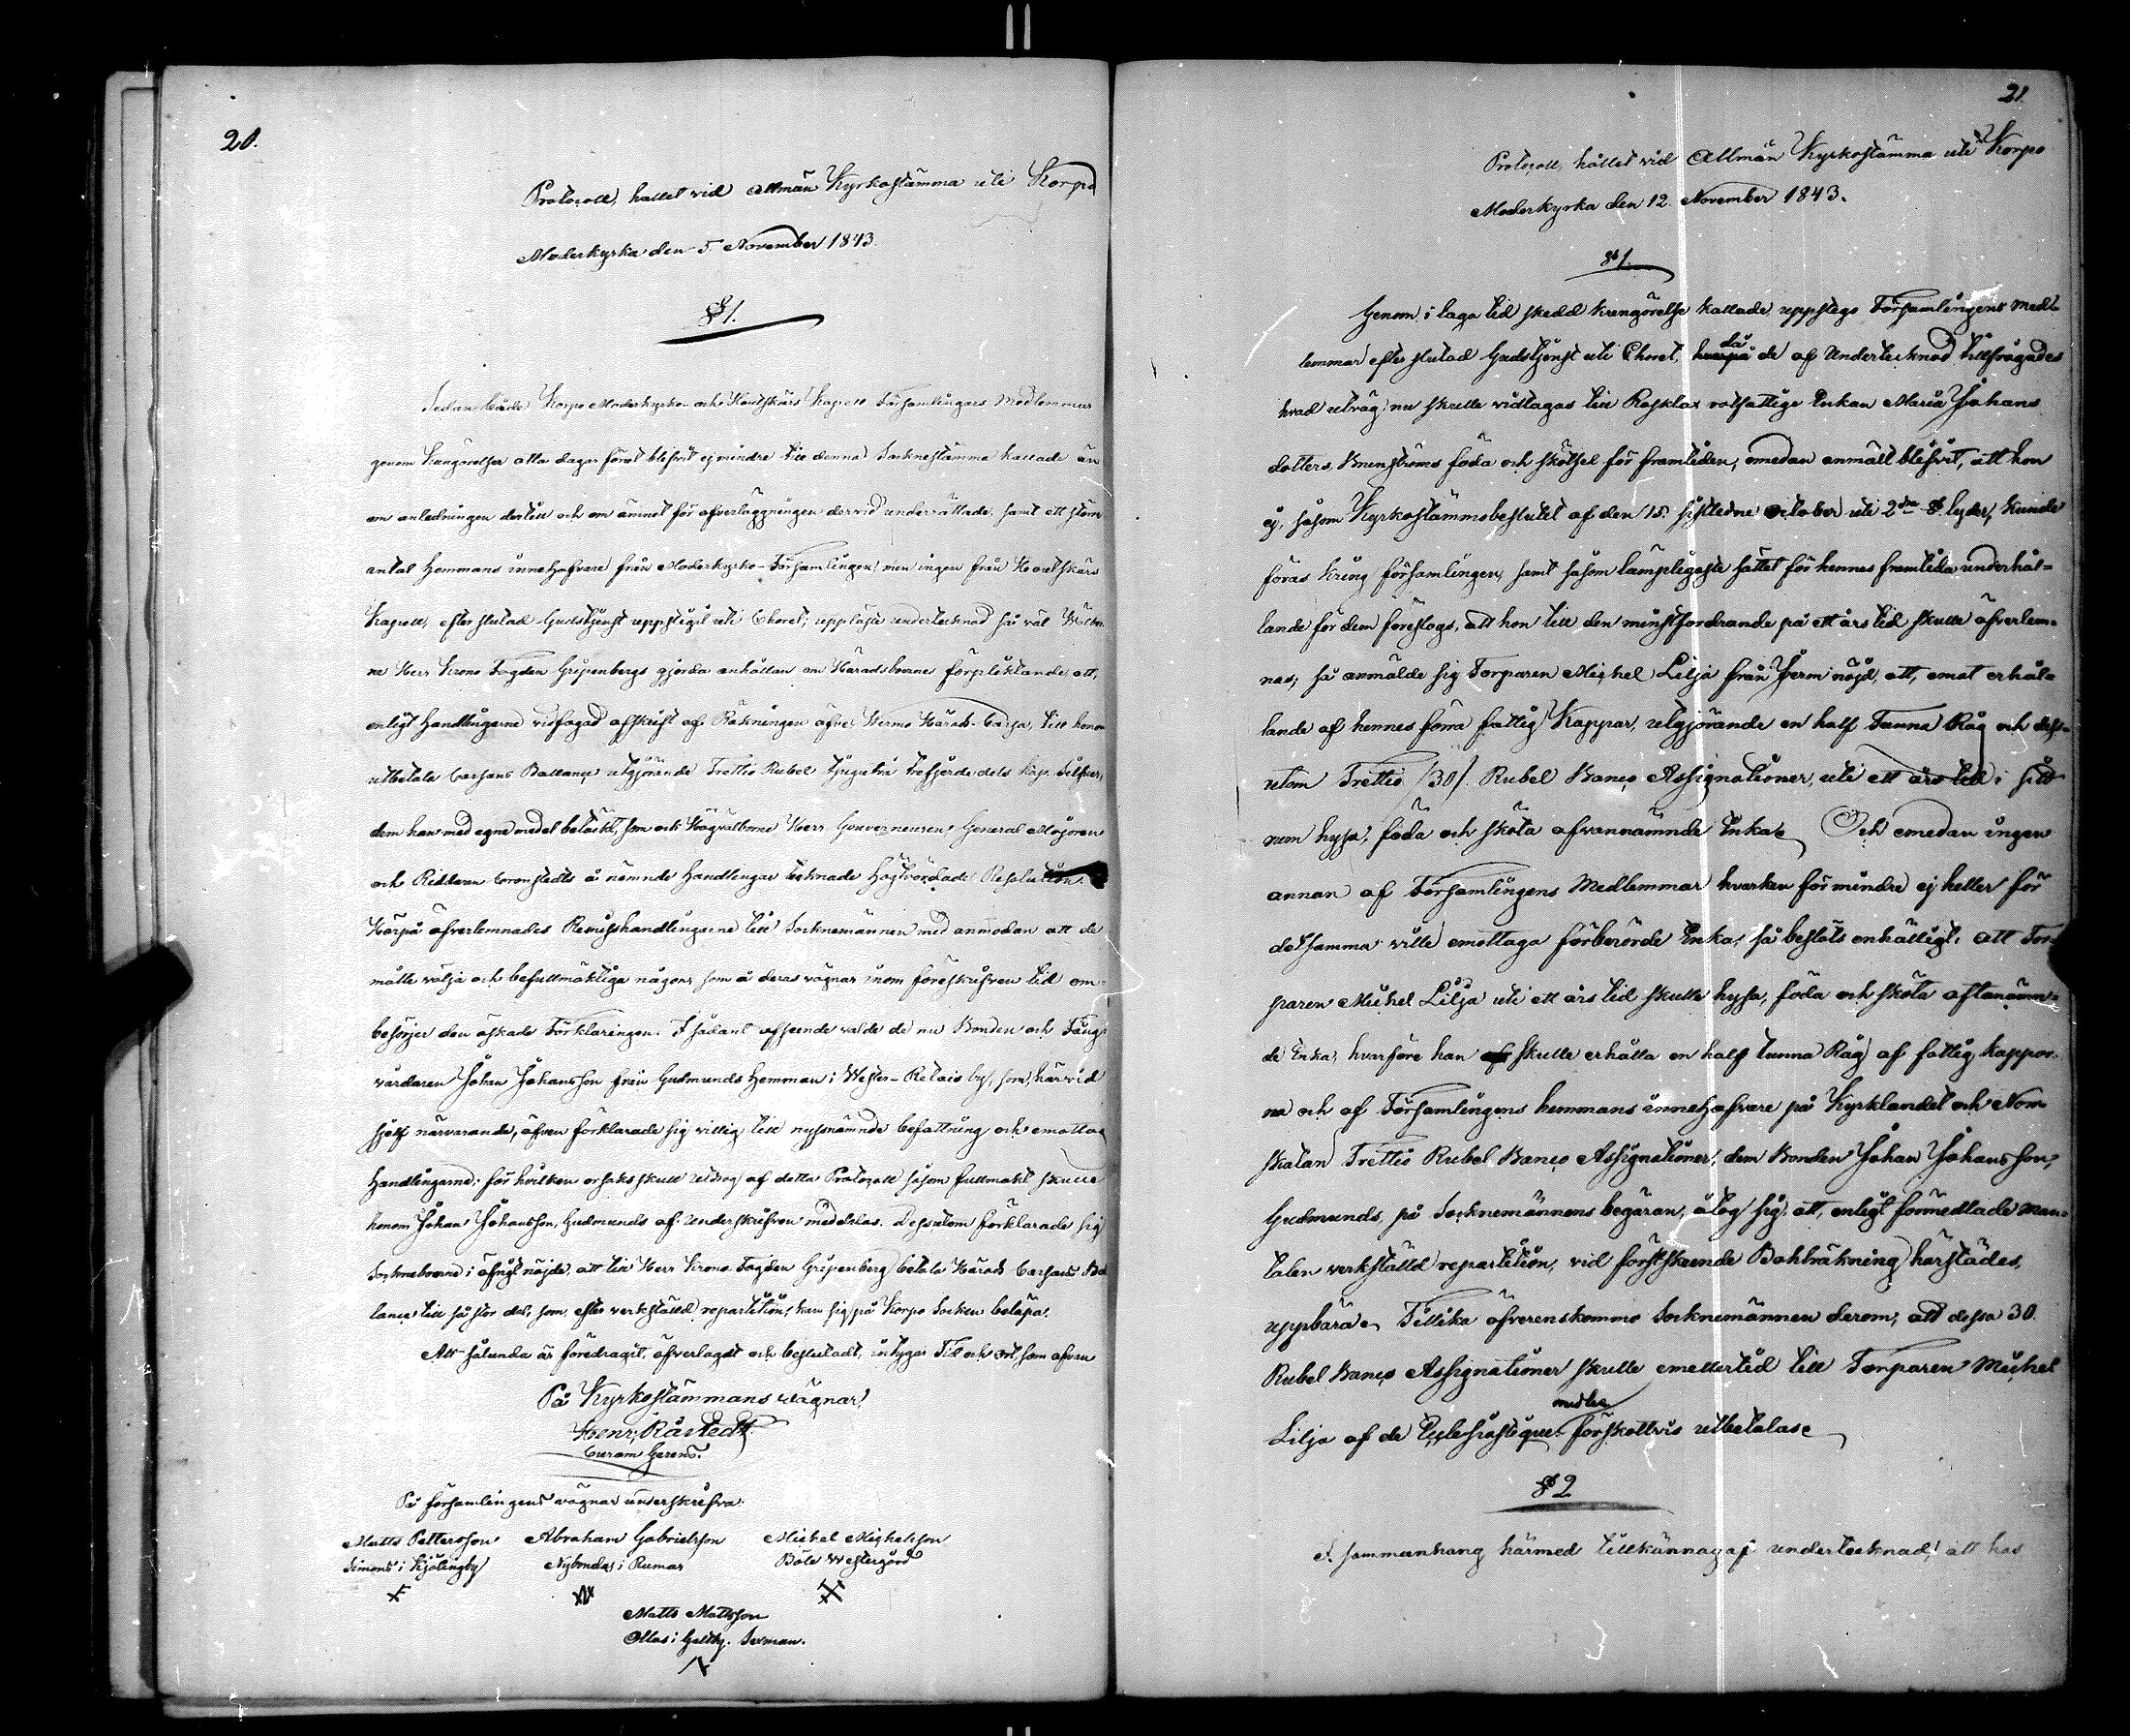 20.
Protocoll, hållet vid allmän Kyrkostämma uti Korpo
Moderkyrka den 5 November 1843.
§ 1.
Sedan både Korpo Moderkyrko- och Houtskärs Kapell Församlingars Medlemmar
genom Kungörelser åtta dagar förut blifvit ej mindre till denna Socknestämma kallade än
om anledningen dertill och om ämnet för öfverläggningen dervid underrättade, samt ett stort
antal Hemmans innehafvare från Moderkyrko-Församlingen, men ingen från Houtskärs
Kapell, efter slutad Gudstjenst uppstigit uti Choret; uppläste undertecknad så väl
ne Herr Krono Fogden Gripenbergs gjorda anhållan om Häradsboernes förpliktande att,
enligt Handlingarne vidfogad afskrift af Räkningen öfver Härads-Cassa, till honom
utbetala Cassans Ballance utgjörande Trettio Rubel tjugutvå trefjerdedels kop. Silfver,
dem han med egne medel betäckt, som ock Högvälborne Herr Gouverneuren, General Majoren
och Riddaren Cronstedts å nämnde Handlingar tecknade Högtvördade Resolution.
Härpå öfverlemnades Remisshandlingarne till Socknemännen med anmodan att de
måtte välja och befullmäktiga någon, som å deras vägnar inom föreskrifven tid om-
besörjer den äskade Förklaringen. I sådant afseende valde de nu Bonden och Fång-
vårdaren Johan Johansson från Gudmunds Hemman i Wester-Retais by, som, härvid
sjelf närvarande, äfven förklarade sig villig till nyssnämnde befattning och emottog
Handlingarne; för hvilken orsaks skull utdrag af detta Protocoll såsom fullmakt skulle
honom Johan Johansson, Gudmunds af underskrifven meddelas. Dessutom förklarade sig
Sockneboerne i öfrigt nöjde, att till Herr Krono Fogden Gripenberg betala Härads Cassans Bal-
lance till så stor del, som, efter verkställd repartition, kan sig på Korpo Socken belöpa.
Att sålunda är föredragit, öfverlagdt och beslutadt, intygar Tid och ort, som ofvan
På Kyrkostämmans vägnar
Henr. Råstedt.
Curam Gerens.
På församlingens vägnar underskrifva:
Matts Pettersson Abraham Gabrielsson Michel Michelsson
Simons i Kjälingby Nybondas i Rumar Böle Westergård
Matts Mattsson
Ollas i Galtby. Sexman.
21.
Protocoll, hållet vid Allmän Kyrkostämma uti Korpo
Moderkyrka den 12 November 1843.
§ 1.
Genom i laga tid skedd kungörelse kallade, uppstego Församlingens Med-
lemmar efter slutad Gudstjenst uti Choret, hvarpå då de af Undertecknad tillfrågades
hvad utväg nu skulle vidtagas till Rosklax rotfattige Enkan Maria Johans
dotters Brenströms föda och skötsel för framtiden, emedan anmält blifvit, att hon
ej, såsom Kyrkostämmobeslutet af den 15 sistledne October uti 2dra § lyder, kunde
föras kring församlingen, samt såsom lämpligaste sättet för hennes framtida underhål-
lande för dem föreslogs, att hon till den minstfordrande på ett års tid skulle öfverlem-
nas; så anmälde sig Torparen Michel Lilja från Jerm nöjd, att, emot erhål-
lande af hennes förra fattig Kappar, utgjörande en half Tunna Råg och dess-
utom Trettio /30/. Rubel Banco Assignationer, uti ett års tid i sitt
rum hysa, föda och sköta ofvannämnde Enka. Och emedan ingen
annan af Församlingens Medlemmar hvarken för mindre ej heller för
detsamma ville emottaga förberörde Enka, så beslöts enhälligt, att Tor-
paren Michel Lilja uti ett års tid skulle hysa, föda och sköta oftanämn-
de Enka, hvarföre han skulle erhålla en half tunna Råg af fattig kappor-
na och af Församlingens hemmans innehafvare på Kyrklandet och Nom
skatan Trettio Rubel Banco Assignationer, dem Bonden Johan Johansson,
Gudmunds, på Socknemännens begäran, åtog sig, att, enligt förmedlade man-
talen verkställd repartition, vid förstskeende Bohlräkning härstädes,
uppbära. Tillika öfverenskommo Socknemännen derom, att dessa 30
Rubel Banco Assignationer skulle emellertid till Torparen Michel
Lilja af de Ecclesiastique medlen förskottvis utbetalas.
§ 2
I sammanhang härmed tillkännagaf undertecknad, att hos